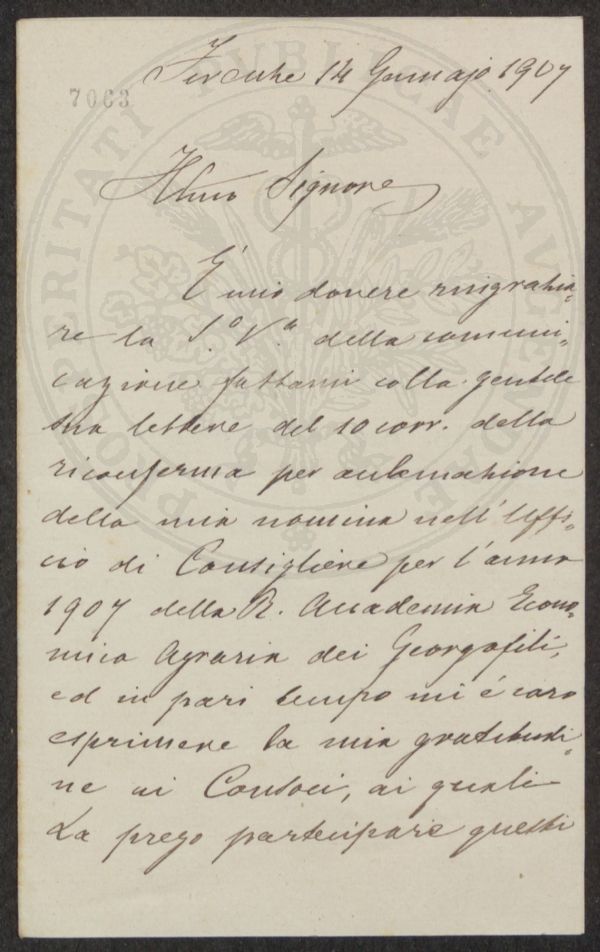 Firenze 14 Gennajo 1907
7063
PROSPERITATI PVBLICAE AVGENDAE
Illmo Signore
È mio dovere ringrazia=
re la S.ª V.ª della comuni=
cazione fattami colla gentile
sua lettera del 10 corr. della
riconferma per acclamazione
della mia nomina nell'Uffi=
cio di Consigliere per l'anno
1907 della R. Accademia Econo=
mico Agraria dei Georgofili,
ed in pari tempo mi è caro
esprimere la mia gratitudi=
ne ai Consoci, ai quali
La prego partecipare questi